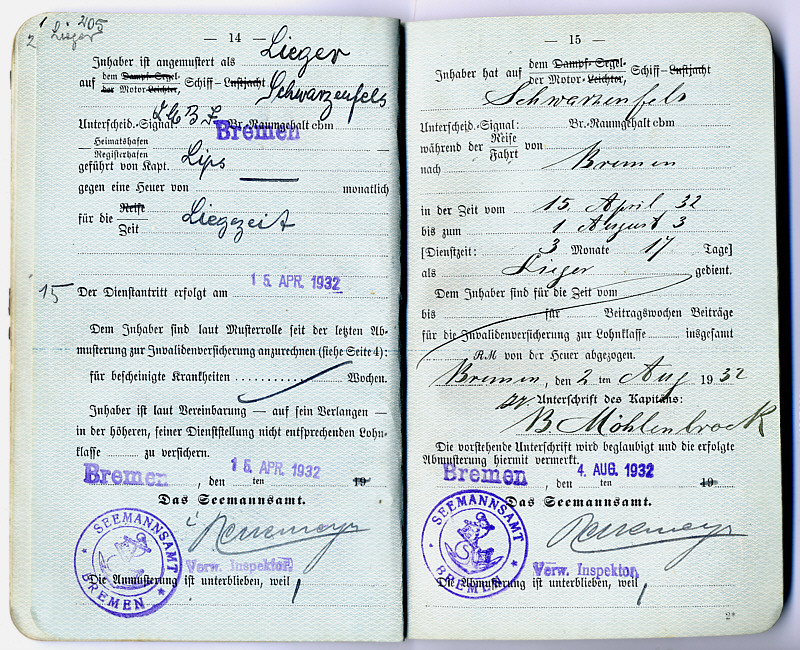 1 205
2 Lieger
— 14 —
Inhaber ist angemustert als Lieger
auf dem Dampf- Segel- der Motor- Leichter, Schiff - Luftjacht Schwarzenfels
Unterscheid.-Signal: Br.-Raumgehalt cbm
Heimatshafen Bremen
Registerhafen
geführt von Kapt. Lips
gegen eine Heuer von — monatlich
für die Reise Zeit Liegezeit
15 Der Dienstantritt erfolgt am 15. APR. 1932
Dem Inhaber sind laut Musterrolle seit der letzten Ab-
musterung zur Invalidenversicherung anzurechnen (siehe Seite 4):
für bescheinigte Krankheiten .......... Wochen.
Inhaber ist laut Vereinbarung — auf sein Verlangen —
in der höheren, seiner Dienststellung nicht entsprechenden Lohn-
klasse zu versichern.
Bremen, den 15. APR. 1932 ten 19
Das Seemannsamt.
Verw. Inspektor.
SEEMANNSAMT BREMEN
Die Anmusterung ist unterblieben, weil
— 15 —
Inhaber hat auf dem Dampf- Segel- der Motor- Leichter, Schiff - Luftjacht
Schwarzenfels
Unterscheid.-Signal: Br.-Raumgehalt cbm
während der Reise Fahrt von
nach Bremen
in der Zeit vom 15. April 32
bis zum 1 August 3
[Dienstzeit: 3 Monate 17 Tage]
als Lieger gedient.
Dem Inhaber sind für die Zeit vom
bis für Beitragswochen Beiträge
für die Invalidenversicherung zur Lohnklasse insgesamt
RM von der Heuer abgezogen.
Bremen, den 2 ten Aug 1932
Unterschrift des Kapitäns:
B. Möhlenbrock
Die vorstehende Unterschrift wird beglaubigt und die erfolgte
Abmusterung hiermit vermerkt.
Bremen, den 4. AUG. 1932 ten 19
Das Seemannsamt.
Verw. Inspektor.
SEEMANNSAMT BREMEN
Die Abmusterung ist unterblieben, weil
2*